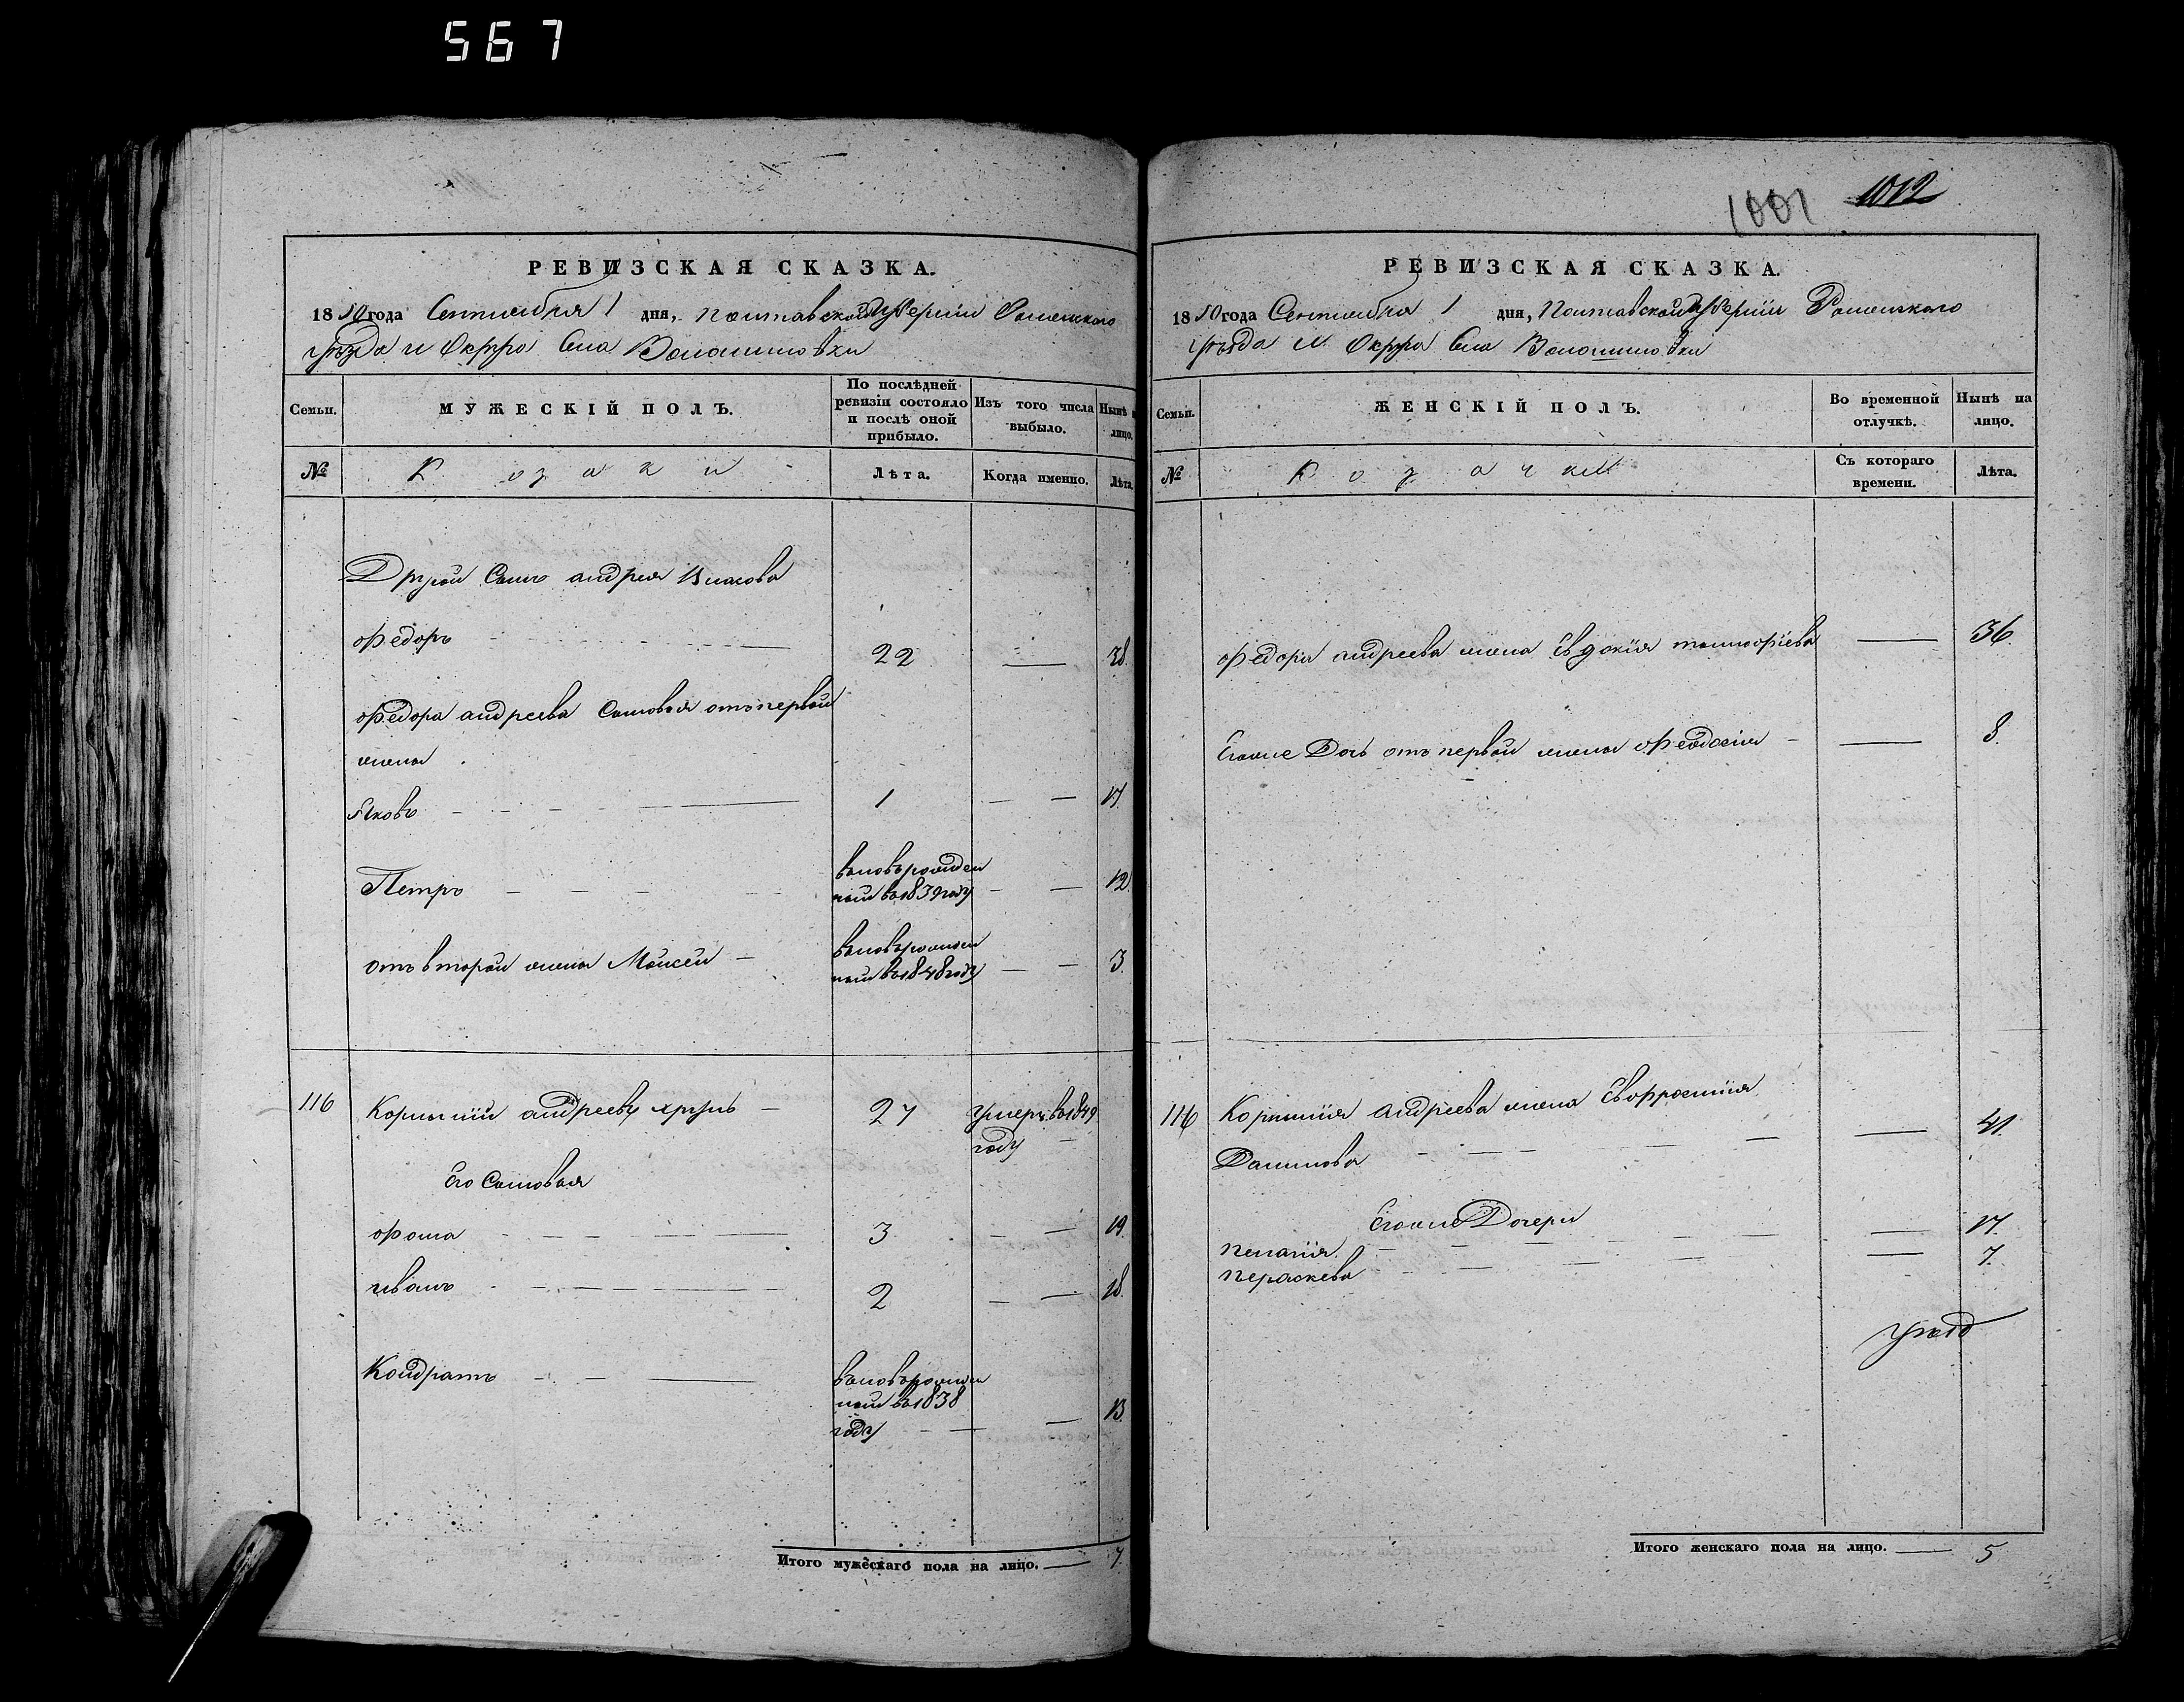 567
РЕВИЗСКАЯ СКАЗКА.
1850 года Сентября 1 дня, Полтавской Губерніи Роменского
уѣзда и Округа Села Волошиновки
Семьи.
МУЖЕСКІЙ ПОЛЪ.
По послѣдней ревизіи состояло и послѣ оной прибыло.
Изъ того числа выбыло.
Нынѣ
лицо.
№
Козаки
Лѣта.
Когда именно.
Лѣта.
Другой Сынъ андрея Власова
Федоръ 22 38.
Федора андреева Сыновья отъ первой
жены
Яковъ 1 17.
Петръ вновьрожден
ный в 1839 году 12.
отъ второй жены Моисей вновьрожден
ный в 1848 году 3.
116 Корнилій андреевъ 27 умеръ в 1849
году
Его Сыновья
Фома 3 19.
иванъ 2 18.
Кондратъ вновьрожден
ный в 1838
году 13.
Итого мужескаго пола на лицо. 7.
1001 1012
РЕВИЗСКАЯ СКАЗКА.
1850 года Сентября 1 дня, Полтавской Губерніи Роменского
уѣзда и Округа Села Волошиновки
Семьи.
ЖЕНСКІЙ ПОЛЪ.
Во временной отлучкѣ.
Нынѣ на лицо.
№
Козачки
Съ котораго времени.
Лѣта.
Федора андреева жена Евдокія тимофіева 36.
Егоже Дочь отъ первой жены Феодосія 8.
116 Корнилія андреева жена Евфросинія
Данилова 41.
Егоже Дочери
пелагія 17.
параскева 7.
Итого женскаго пола на лицо. 5